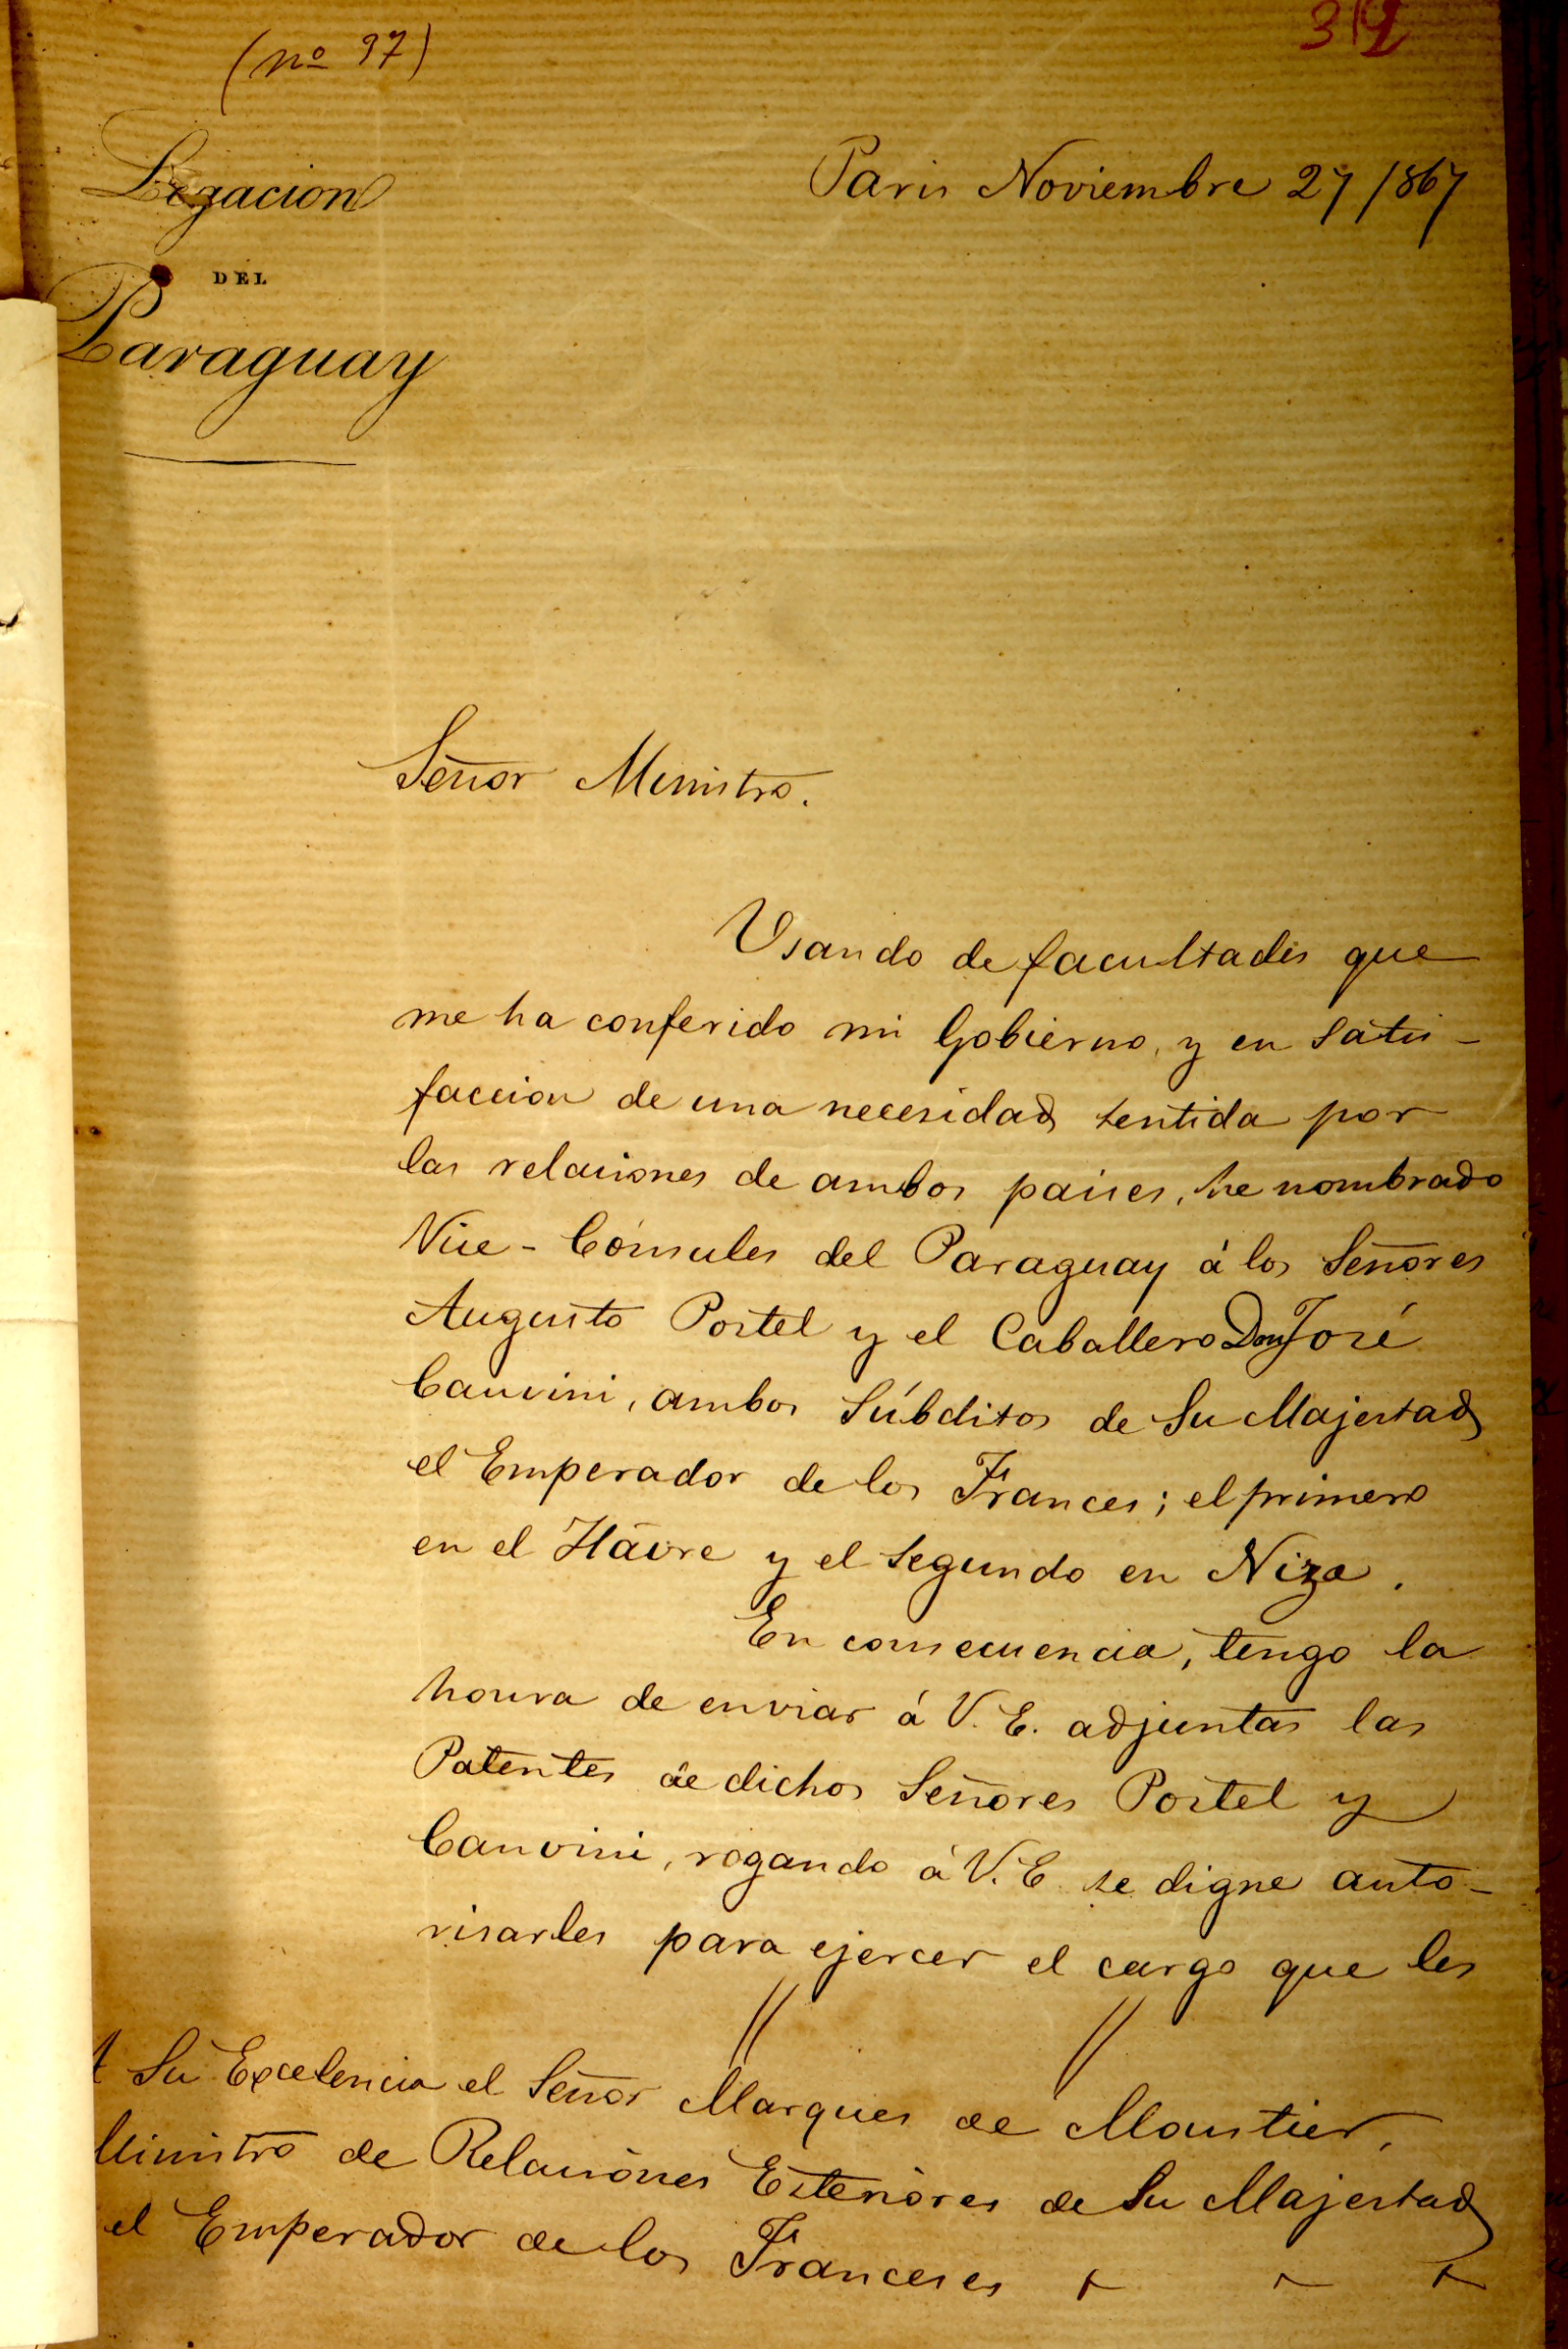 (nº 97)
Legacion
DEL
Paraguay
Paris Noviembre 27/867
Señor Ministro.
Usando de facultades que
me ha conferido mi Gobierno, y en satis-
faccion de una necesidad sentida por
las relaciones de ambos paises, he nombrado
Vice-Cónsules del Paraguay á los Señores
Augusto Postel y el Caballero Don José
ambos Súbditos de Su Majestad
el Emperador de los Frances; el primero
en el Hâvre y el segundo en Niza.
En consecuencia, tengo la
honra de enviar á V. E. adjuntas las
Patentes de dichos Señores Postel y
rogando á V. E. se digne auto-
risarles para ejercer el cargo que les
// //
A Su Excelencia el Señor Marques de Moustier,
Ministro de Relaciones Esteriores de Su Majestad
el Emperador de los Franceses